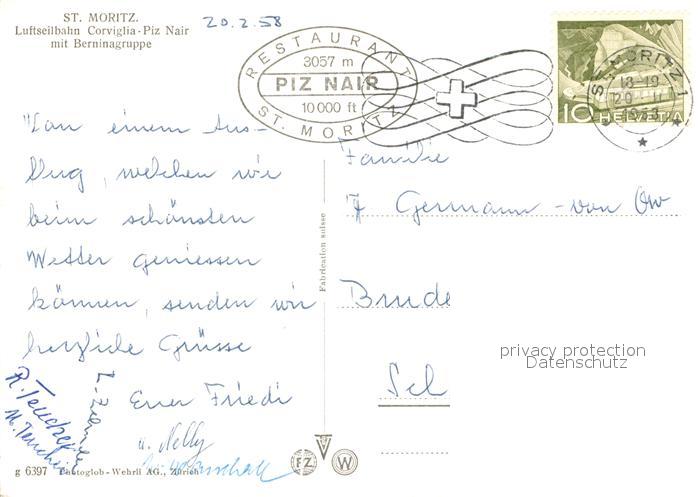 ST. MORITZ.
Luftseilbahn Corviglia-Piz Nair
mit Berninagruppe
20.2.58
RESTAURANT
3057 m
PIZ NAIR
10 000 ft
ST. MORITZ
ST. MORITZ 1
18-19
10 HELVETIA
"Von einem Aus-
flug, welchen wir
beim schönsten
Wetter geniessen
können, senden wir
herzliche Grüsse
Euer Friedi
u. Nelly
R. Teucher
Familie
Germann - von Ow
Fabrication suisse
privacy protection
Datenschutz
g 6397 Photoglob-Wehrli AG., Zürich
FZ V W